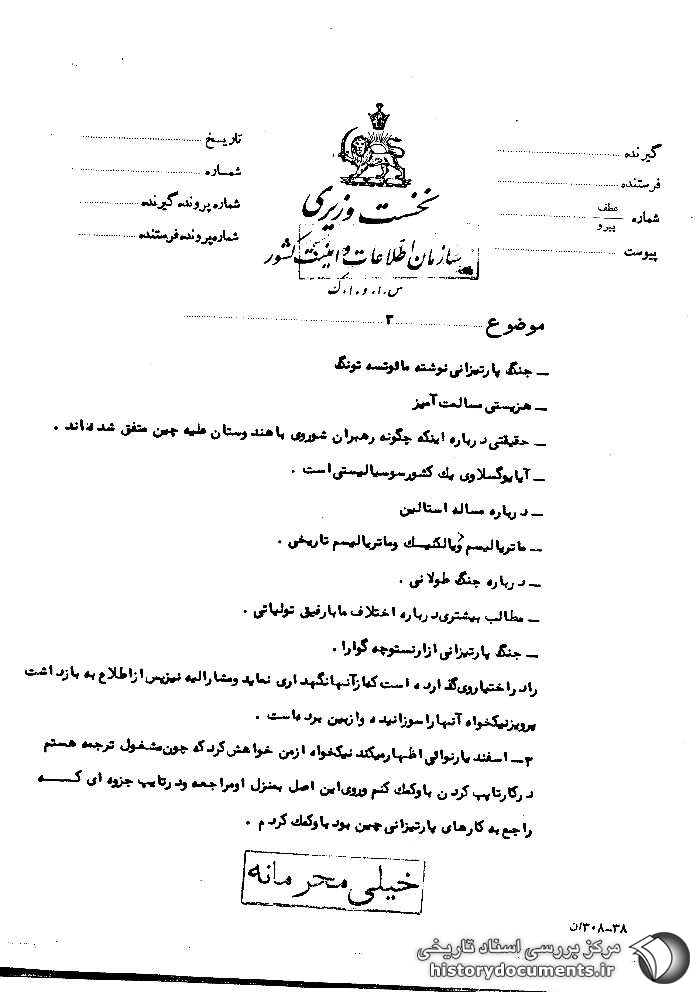 گیرنده
فرستنده
شماره عطف
پیرو
پیوست
تاریخ
شماره
شماره پرونده گیرنده
شماره پرونده فرستنده
نخست وزیری
سازمان اطلاعات و امنیت کشور
س.ا.و.ا.ک
موضوع ۲
ـ جنگ پارتیزانی نوشته مائوتسه تونگ
ـ هزیستی مسالمت آمیز
ـ حقیقتی درباره اینکه چگونه رهبران شوروی با هندوستان علیه چین متفق شده‌اند .
ـ آیا یوگسلاوی یك کشور سوسیالیستی است .
ـ درباره مساله استالین
ـ ماتریالیسم دیالکتیك وماتریالیسم تاریخی .
ـ درباره جنگ طولانی .
ـ مطالب بیشتری درباره اختلاف ما با رفیق تولیاتی .
ـ جنگ پارتیزانی از ارنستوچه گوارا .
را در اختیار وی گذارده است که از آنها نگهداری نماید ومشارالیه نیز پس از اطلاع به بازداشت
پرویز نیکخواه آنها را سوزانیده و از بین برده است .
۳ـ اسفند یار نوائی اظهار میکند نیکخواه از من خواهش کرد که چون مشغول ترجمه هستم
در کار تایپ کردن با و کمك کنم و روی این اصل بمنزل او مراجعه و در تایپ جزوه ای کــه
راجع به کارهای پارتیزانی چین بود با و کمك کردم .
خیلی محرمانه
۳۰۸-۳۸/ن
مرکز بررسی اسناد تاریخی
historydocuments.ir